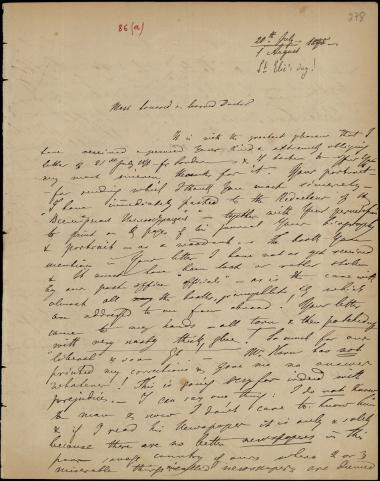 278
86 (a)
20th July
1 August
St Elie's day!
Most honored & learned Doctor
It is with the greatest pleasure that I
have received & perused Your kind & extremely obliging
letter of 21st July from London & I hasten to offer You
my most sincere thanks for it. Your portrait
for sending which I thank You much sincerely
I have immediately posted to the Redacteur of the
together with Your permission
to print on the page of his journal Your biography
& portrait as a woodcut. the book You
mention in Your letter I have not as yet received
& It must have been lost or rather stolen
by our post office "officials" as is the case with
almost all the books, pamphlets &c which
are addressed to me from abroad! Your letter
came to my hands all torn & then patched up
with very nasty thick glue! So much for our
"liberal & so on" Mr. has not
printed my corrections & gave me no answer
whatever! This is going very far indeed with
prejudice. I can say one thing: I do not know
the man & now I don't care to know him
& if I read his Newspaper it is only & solely
because there are no better newspapers in this
poor country of ours where 2 or 3
miserable newspapers are